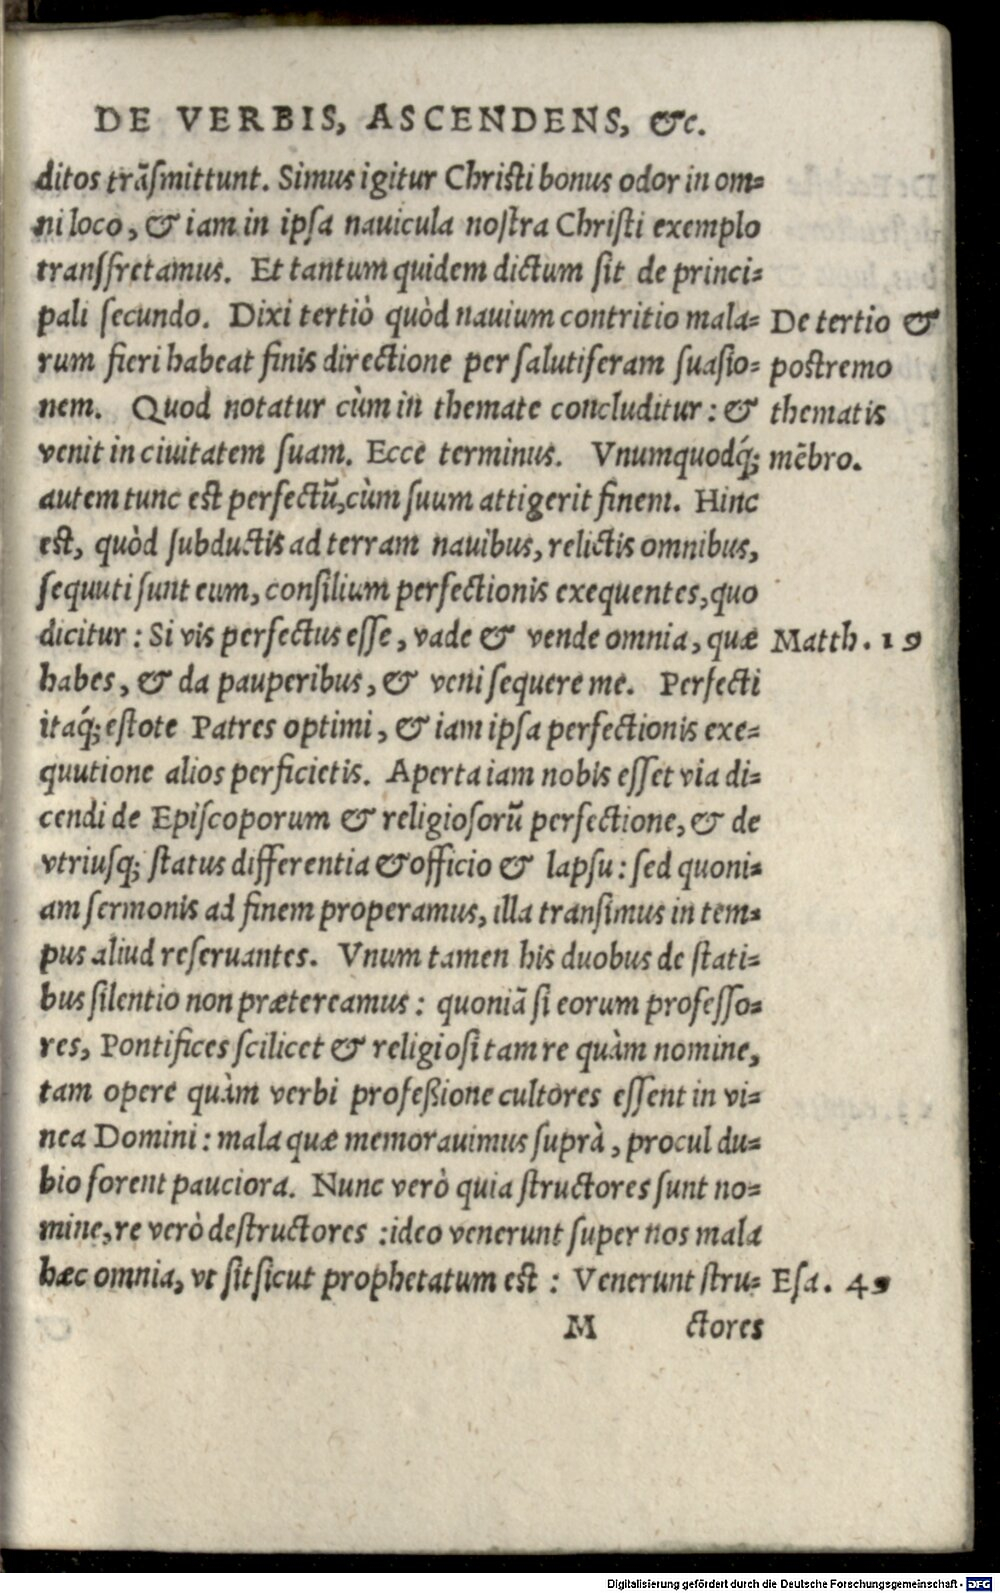 DE VERBIS, ASCENDENS, &c.
ditos trãſmittunt. Simus igitur Chriſti bonus odor in om=
ni loco, & iam in ipſa nauicula noſtra Chriſti exemplo
transfretamus. Et tantum quidem dictum ſit de princi=
pali ſecundo. Dixi tertiò quòd nauium contritio mala=
rum fieri habeat finis directione per ſalutiferam ſuaſio=
nem. Quod notatur cùm in themate concluditur: &
venit in ciuitatem ſuam. Ecce terminus. Vnumquodq́;
autem tunc eſt perfectũ, cùm ſuum attigerit finem. Hinc
eſt, quòd ſubductis ad terram nauibus, relictis omnibus,
ſequuti ſunt eum, conſilium perfectionis exequentes, quo
dicitur: Si vis perfectus eſſe, vade & vende omnia, quæ
habes, & da pauperibus, & veni ſequere me. Perfecti
itaq́; eſtote Patres optimi, & iam ipſa perfectionis exe=
quutione alios perficietis. Aperta iam nobis eſſet via di=
cendi de Epiſcoporum & religioſorũ perfectione, & de
vtriuſq; ſtatus differentia & officio & lapſu: ſed quoni=
am ſermonis ad finem properamus, illa tranſimus in tem=
pus aliud reſeruantes. Vnum tamen his duobus de ſtati=
bus ſilentio non prætereamus: quoniã ſi eorum profeſſo=
res, Pontifices ſcilicet & religioſi tam re quàm nomine,
tam opere quàm verbi profeßione cultores eſſent in vi=
nea Domini: mala quæ memorauimus ſuprà, procul du=
bio forent pauciora. Nunc verò quia ſtructores ſunt no=
mine, re verò deſtructores: ideo venerunt ſuper nos mala
hæc omnia, vt ſit ſicut prophetatum eſt: Venerunt ſtru=
M ctores
De tertio &
poſtremo
thematis
mẽbro.
Matth. 19
Eſa. 49
Digitalisierung gefördert durch die Deutsche Forschungsgemeinschaft - DFG